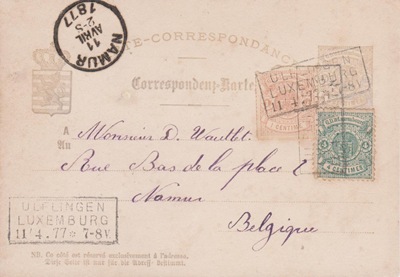 NAMUR
11
AVRIL
2-S
1877
CARTE-CORRESPONDANCE
Correspondenz-Karte
ULFLINGEN
LUXEMBURG
11/4.77 * 7-8V
1 CENTIME
4 CENTIMES
A
An
Monsieur D.
Rue Bas de la place 2
Namur
Belgique
ULFLINGEN
LUXEMBURG
11/4.77 * 7-8V.
NB. Ce côté est réservé exclusivement à l'adresse.
Diese Seite ist nur für die Adresse bestimmt.